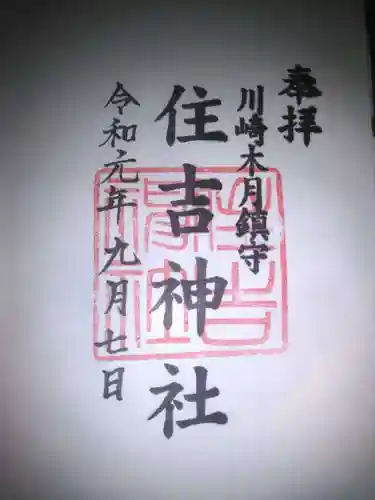 奉拝
川崎木月鎮守
住吉神社
令和元年九月七日
住吉神社